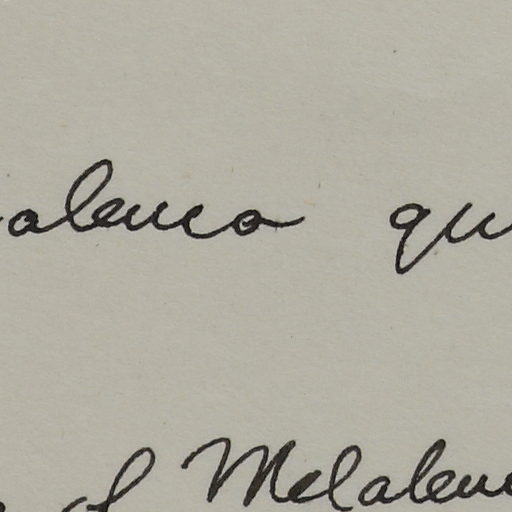 aleuca qu
of Melaleu